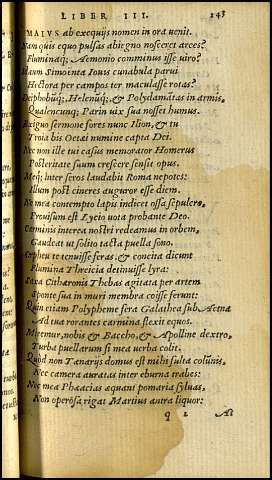 LIBER III. 243
MAIVS ab exequijs nomen in ora venit.
Nam quis equo pulsas abiegno nosceret arces?
Fluminaq; Aemonio comminus isse uiro?
Idaeum Simoenta Iouis cunabula parui
Hectora per campos ter maculasse rotas?
Deiphobúq;, Helenúq;, & Polydámātas in armis,
Qualemcunq; Parin uix sua nosset humus.
Exiguo sermone fores nunc Ilion, & tu
Troia bis Oetæi numine capta Dei.
Nec non ille tui casus memorator Homerus
Posteritate suum crescere sensit opus.
Meq; inter seros laudabit Roma nepotes:
Illum post cineres auguror esse diem.
Ne mea contempto lapis indicet ossa sepulcro,
Prouisum est Lycio uota probante Deo.
Carminis interea nostri redeamus in orbem,
Gaudeat ut solito tacta puella sono.
Orpheu te tenuisse feras, & concita dicunt
Flumina Threicia detinuisse lyra:
Saxa Citharonis Thebas agitata per artem
Sponte sua in muri membra coisse ferunt:
Quin etiam Polypheme fera Galathea sub Aetna
Ad tua rorantes carmina flexit equos.
Miremur, nobis & Baccho, & Apolline dextro,
Turba puellarum si mea uerba colit.
Quòd non Tænarijs domus est mihi fulta colūnis,
Nec camera auratas inter eburna trabes:
Nec mea Phæacias æquant pomaria syluas,
Non operosa rigat Martius antra liquor:
q 2 At